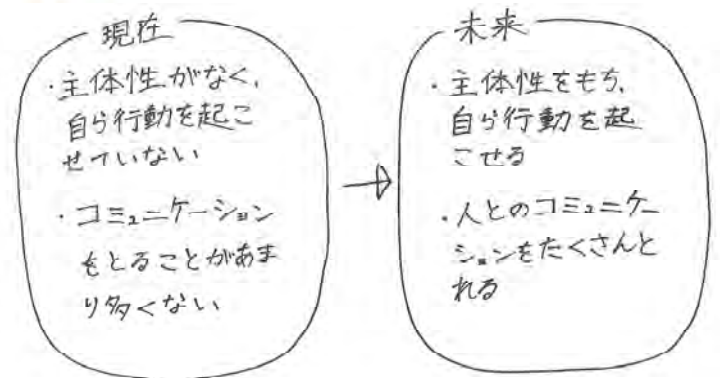 現在
・主体性がなく、
自ら行動を起こ
せていない
・コミュニケーション
をとることがあま
り多くない
未来
・主体性をもち、
自ら行動を起
こせる
・人とのコミュニケー
ションをたくさんと
れる